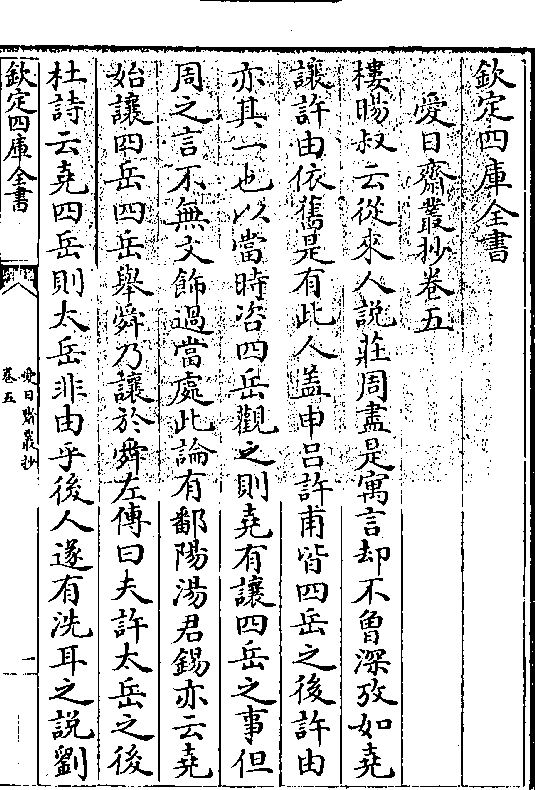 欽定四庫全書
愛日齋叢抄卷五
樓暘叔云從來人說莊周盡是寓言却不曾深攷如堯
讓許由依舊是有此人盖申呂許甫皆四岳之後許由
亦其一也以當時咨四岳觀之則堯有讓四岳之事但
周之言不無文飾過當處此論有鄱陽湯君錫亦云堯
始讓四岳四岳舉舜乃讓於舜左傳曰夫許太岳之後
杜詩云堯四岳則太岳非由乎後人遂有洗耳之說劉
欽定四庫全書
愛日齋叢抄
卷五
一